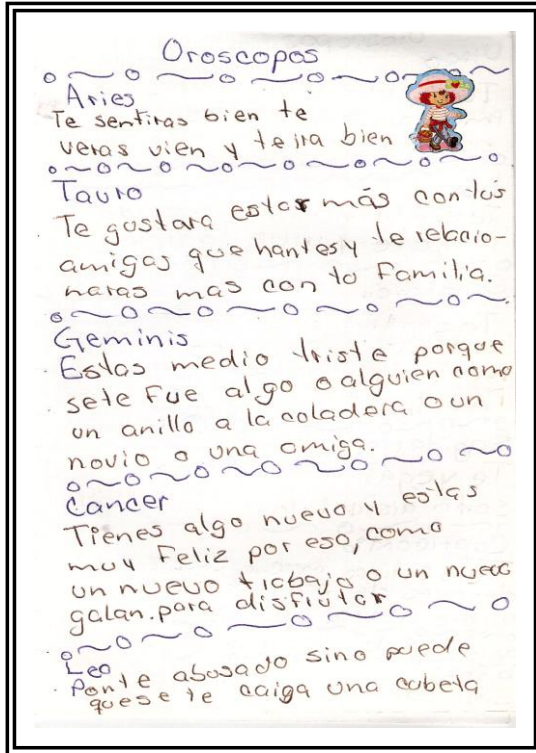 Oroscopos
Aries
Te sentiras bien te
veras vien y te ira bien
Tauro
Te gustara estar más con tus
amigas que hantes y te relacio-
naras mas con tu Familia.
Geminis
Estas medio triste porque
sete Fue algo o alguien como
un anillo a la coladera o un
novio o una amiga.
Cancer
Tienes algo nuevo y estas
muy Feliz por eso, como
un nuevo trabajo o un nuevo
galan. para disfrutar
Leo
Ponte abusado sino puede
quese te caiga una cubeta